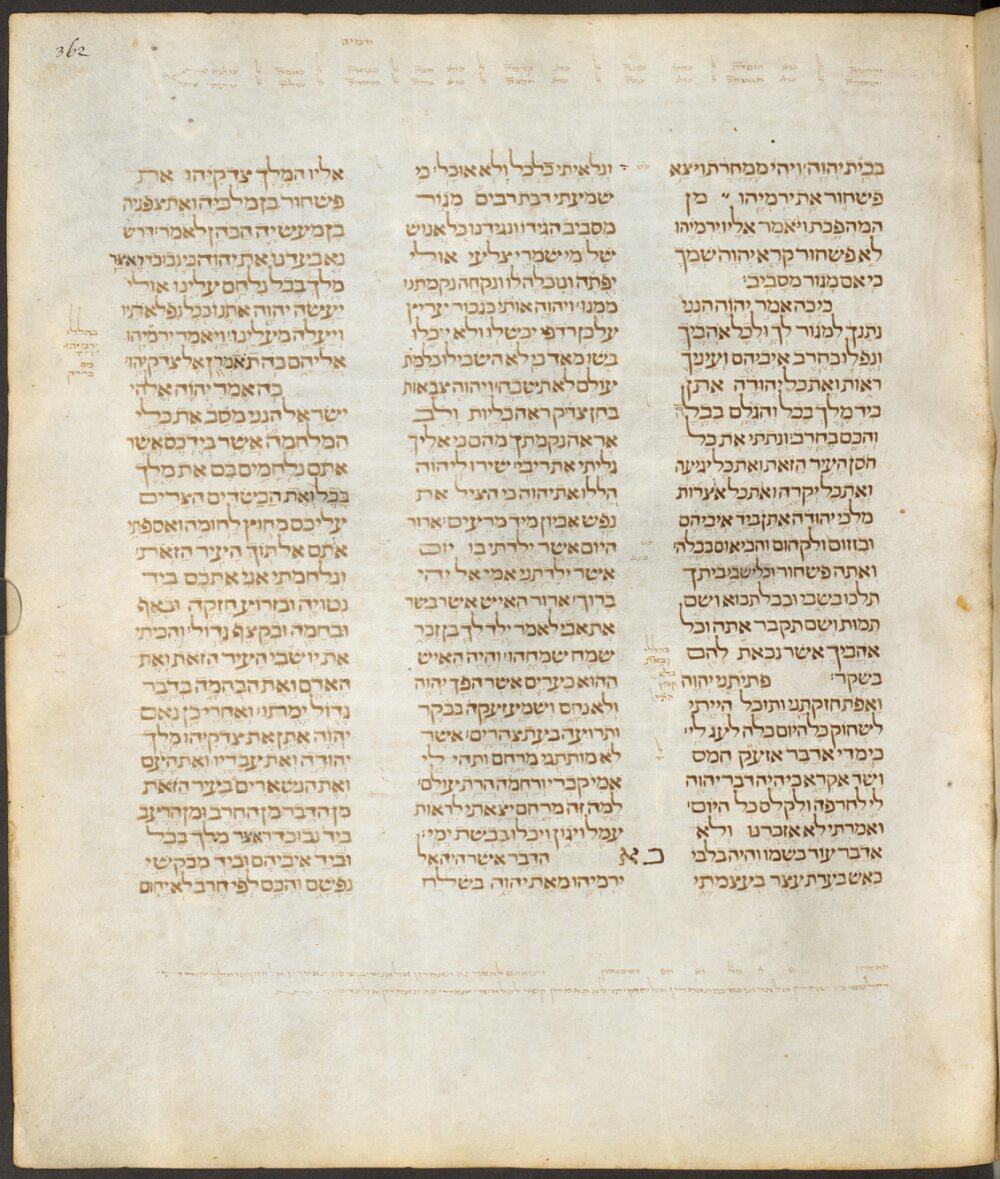 362
ירמיה
בבית יהוה׃ ויהי ממחרת ויצא
פשחור את ירמיהו מן
המהפכת ויאמר אליו ירמיהו
לא פשחור קרא יהוה שמך
כי אם מגור מסביב׃
כי כה אמר יהוה הנני
נתנך למגור לך ולכל אהביך
ונפלו בחרב איביהם ועיניך
ראות ואת כל יהודה אתן
ביד מלך בבל והגלם בבלה
והכם בחרב׃ ונתתי את כל
חסן העיר הזאת ואת כל יגיעה
ואת כל יקרה ואת כל אצרות
מלכי יהודה אתן ביד איביהם
ובזזום ולקחום והביאום בבלה׃
ואתה פשחור וכל ישבי ביתך
תלכו בשבי ובבל תבוא ושם
תמות ושם תקבר אתה וכל
אהביך אשר נבאת להם
בשקר׃ פתיתני יהוה
ואפת חזקתני ותוכל הייתי
לשחוק כל היום כלה לעג לי׃
כי מדי אדבר אזעק חמס
ושד אקרא כי היה דבר יהוה
לי לחרפה ולקלס כל היום׃
ואמרתי לא אזכרנו ולא
אדבר עוד בשמו והיה בלבי
כאש בערת עצר בעצמתי
ונלאיתי כלכל ולא אוכל׃ כי
שמעתי דבת רבים מגור
מסביב הגידו ונגידנו כל אנוש
שלמי שמרי צלעי אולי
יפתה ונוכלה לו ונקחה נקמתנו
ממנו׃ ויהוה אותי כגבור עריץ
על כן רדפי יכשלו ולא יוכלו
בשו מאד כי לא השכילו כלמת
עולם לא תשכח׃ ויהוה צבאות
בחן צדיק ראה כליות ולב
אראה נקמתך מהם כי אליך
גליתי את ריבי׃ שירו ליהוה
הללו את יהוה כי הציל את
נפש אביון מיד מרעים׃ ארור
היום אשר ילדתי בו יום
אשר ילדתני אמי אל יהי
ברוך׃ ארור האיש אשר בשר
את אבי לאמר ילד לך בן זכר
שמח שמחהו׃ והיה האיש
ההוא כערים אשר הפך יהוה
ולא נחם ושמע זעקה בבקר
ותרועה בעת צהרים׃ אשר
לא מותתני מרחם ותהי לי
אמי קברי ורחמה הרת עולם׃
למה זה מרחם יצאתי לראות
עמל ויגון ויכלו בבשת ימי׃
כא הדבר אשר היה אל
ירמיהו מאת יהוה בשלח
אליו המלך צדקיהו את
פשחור בן מלכיה ואת צפניה
בן מעשיה הכהן לאמר׃ דרש
נא בעדנו את יהוה כי נבוכדראצר
מלך בבל נלחם עלינו אולי
יעשה יהוה אתנו ככל נפלאתיו
ויעלה מעלינו׃ ויאמר ירמיהו
אליהם כה תאמרן אל צדקיהו׃
כה אמר יהוה אלהי
ישראל הנני מסב את כלי
המלחמה אשר בידכם אשר
אתם נלחמים בם את מלך
בבל ואת הכשדים הצרים
עליכם מחוץ לחומה ואספתי
אתם אל תוך העיר הזאת׃
ונלחמתי אני אתכם ביד
נטויה ובזרוע חזקה ובאף
ובחמה ובקצף גדול׃ והכיתי
את יושבי העיר הזאת ואת
האדם ואת הבהמה בדבר
גדול ימתו׃ ואחרי כן נאם
יהוה אתן את צדקיהו מלך
יהודה ואת עבדיו ואת העם
ואת הנשארים בעיר הזאת
מן הדבר מן החרב ומן הרעב
ביד נבוכדראצר מלך בבל
וביד איביהם וביד מבקשי
נפשם והכם לפי חרב לא יחוס